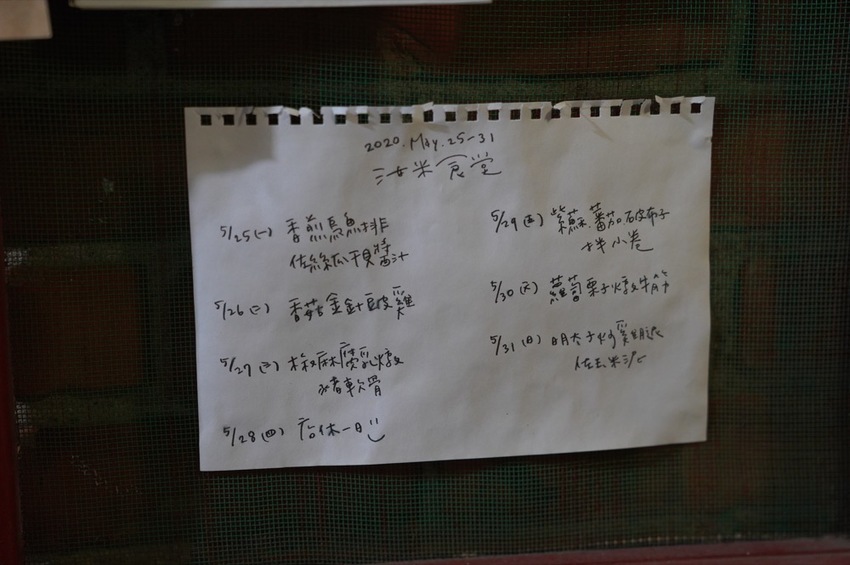 2020. May. 25-31
汝米食堂
5/25(一) 香煎烏魚排
佐絲瓜干貝醬汁
5/26(二) 香菇金針豆皮雞
5/27(三) 椒麻腐乳燉
豬軟骨
5/28(四) 店休一日
5/29(五) 紫蘇.蕃茄破布子
拌小卷
5/30(六) 蘿蔔栗子燉牛筋
5/31(日) 明太子炒雞腿
佐玉米泥